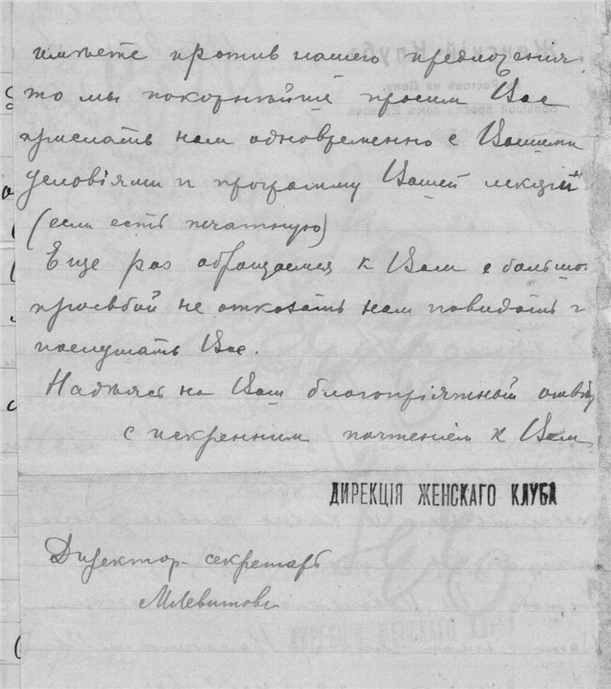 имѣете против нашего предложения,
то мы покорнѣйше просим Вас
прислать нам одновременно с Вашими
условіями и программу Вашей лекціи
(если есть печатную)
Еще раз обращаемся к Вам с большо
просьбой не отказать нам повидать и
послушать Вас.
Надѣясь на Ваш благопріятный отвѣт
с искренним почтеніем к Вам
ДИРЕКЦІЯ ЖЕНСКАГО КЛУБА
Директор секретарь
МЛевитова